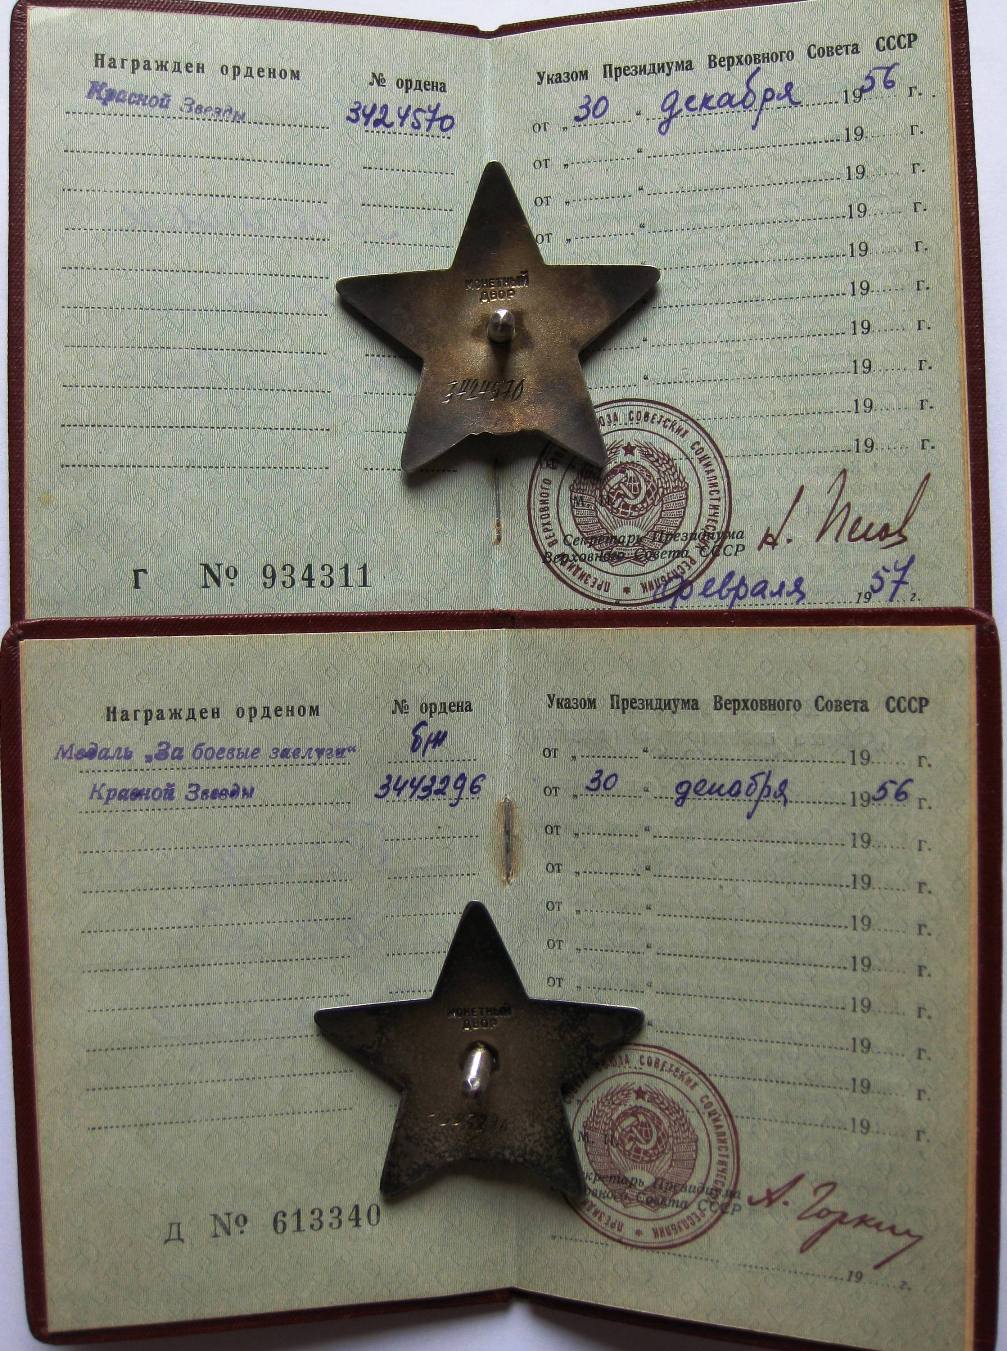 Награжден орденом
№ ордена
Указом Президиума Верховного Совета СССР
Красной Звезды
3424570
от „ 30 “ декабря 1956 г.
от „ “ 19 г.
от „ “ 19 г.
от „ “ 19 г.
19 г.
19 г.
19 г.
“ 19 г.
19 г.
19 г.
МОНЕТНЫЙ
ДВОР
3424570
ПРЕЗИДИУМ ВЕРХОВНОГО СОЮЗА СОВЕТСКИХ СОЦИАЛИСТИЧЕСКИХ РЕСПУБЛИК
М.
Секретарь Президиума
Верховного Совета СССР
Г № 934311
февраля 1957 г.
Награжден орденом
№ ордена
Указом Президиума Верховного Совета СССР
Медаль „За боевые заслуги“
б/н
от „ “ 19 г.
Красной Звезды
3443296
от „ 30 “ декабря 1956 г.
от „ “ 19 г.
от „ “ 19 г.
от „ “ 19 г.
от „ “ 19 г.
от „ “ 19 г.
“ 19 г.
19 г.
19 г.
МОНЕТНЫЙ
ДВОР
СОЮЗА СОВЕТСКИХ СОЦИАЛИСТИЧЕСКИХ РЕСПУБЛИК ПРЕЗИДИУМ
М. П.
Секретарь Президиума
Верховного Совета СССР
А. Горкин
Д № 613340
19 г.